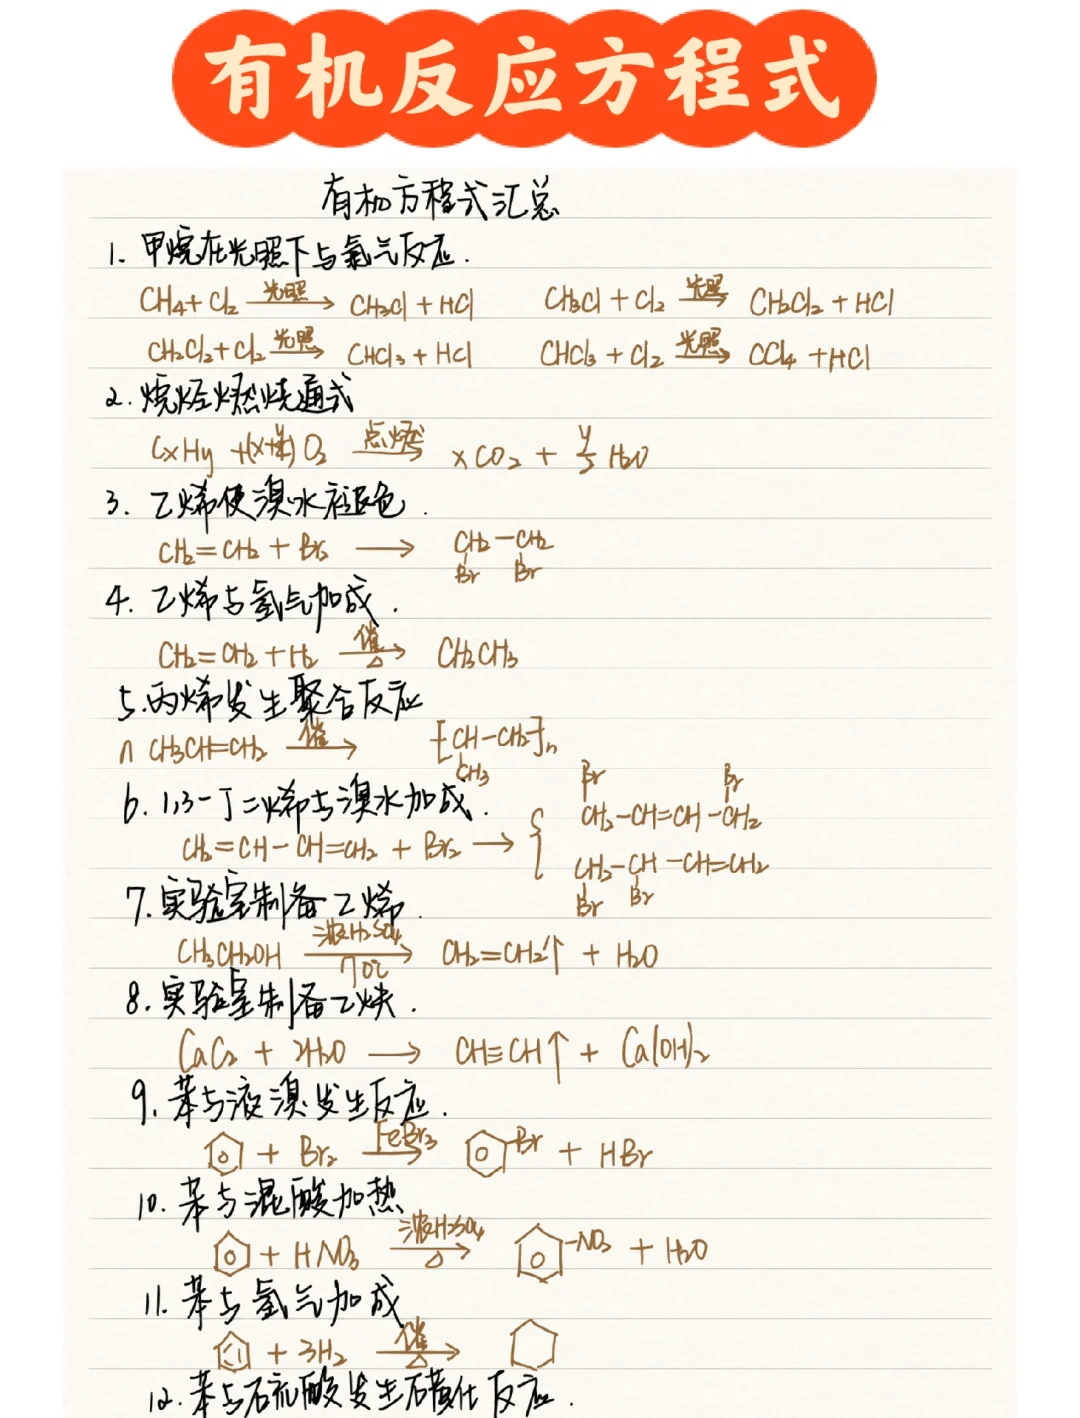 有机反应方程式
有机方程式汇总
1. 甲烷在光照下与氯气反应.
CH4 + Cl2 —光照→ CH3Cl + HCl    CH3Cl + Cl2 —光照→ CH2Cl2 + HCl
CH2Cl2 + Cl2 —光照→ CHCl3 + HCl    CHCl3 + Cl2 —光照→ CCl4 + HCl
2. 烷烃燃烧通式
CxHy + (x+y/4) O2 —点燃→ xCO2 + y/2 H2O
3. 乙烯使溴水褪色.
CH2=CH2 + Br2 ⟶ CH2-CH2
Br Br
4. 乙烯与氢气加成.
CH2=CH2 + H2 —催/△→ CH3CH3
5. 丙烯发生聚合反应
n CH3CH=CH2 —催→ [CH-CH2]n
CH3
6. 1,3-丁二烯与溴水加成.
Br Br
CH2-CH=CH-CH2
CH2=CH-CH=CH2 + Br2 ⟶ {
CH2-CH-CH=CH2
Br Br
7. 实验室制备乙烯.
CH3CH2OH —浓H2SO4/70℃→ CH2=CH2↑ + H2O
8. 实验室制备乙炔.
CaC2 + 2H2O ⟶ CH≡CH↑ + Ca(OH)2
9. 苯与液溴发生反应.
+ Br2 —FeBr3→ -Br + HBr
10. 苯与混酸加热
+ HNO3 —浓H2SO4/△→ -NO3 + H2O
11. 苯与氢气加成
+ 3H2 —催/△→
12. 苯与硫酸发生磺化反应.